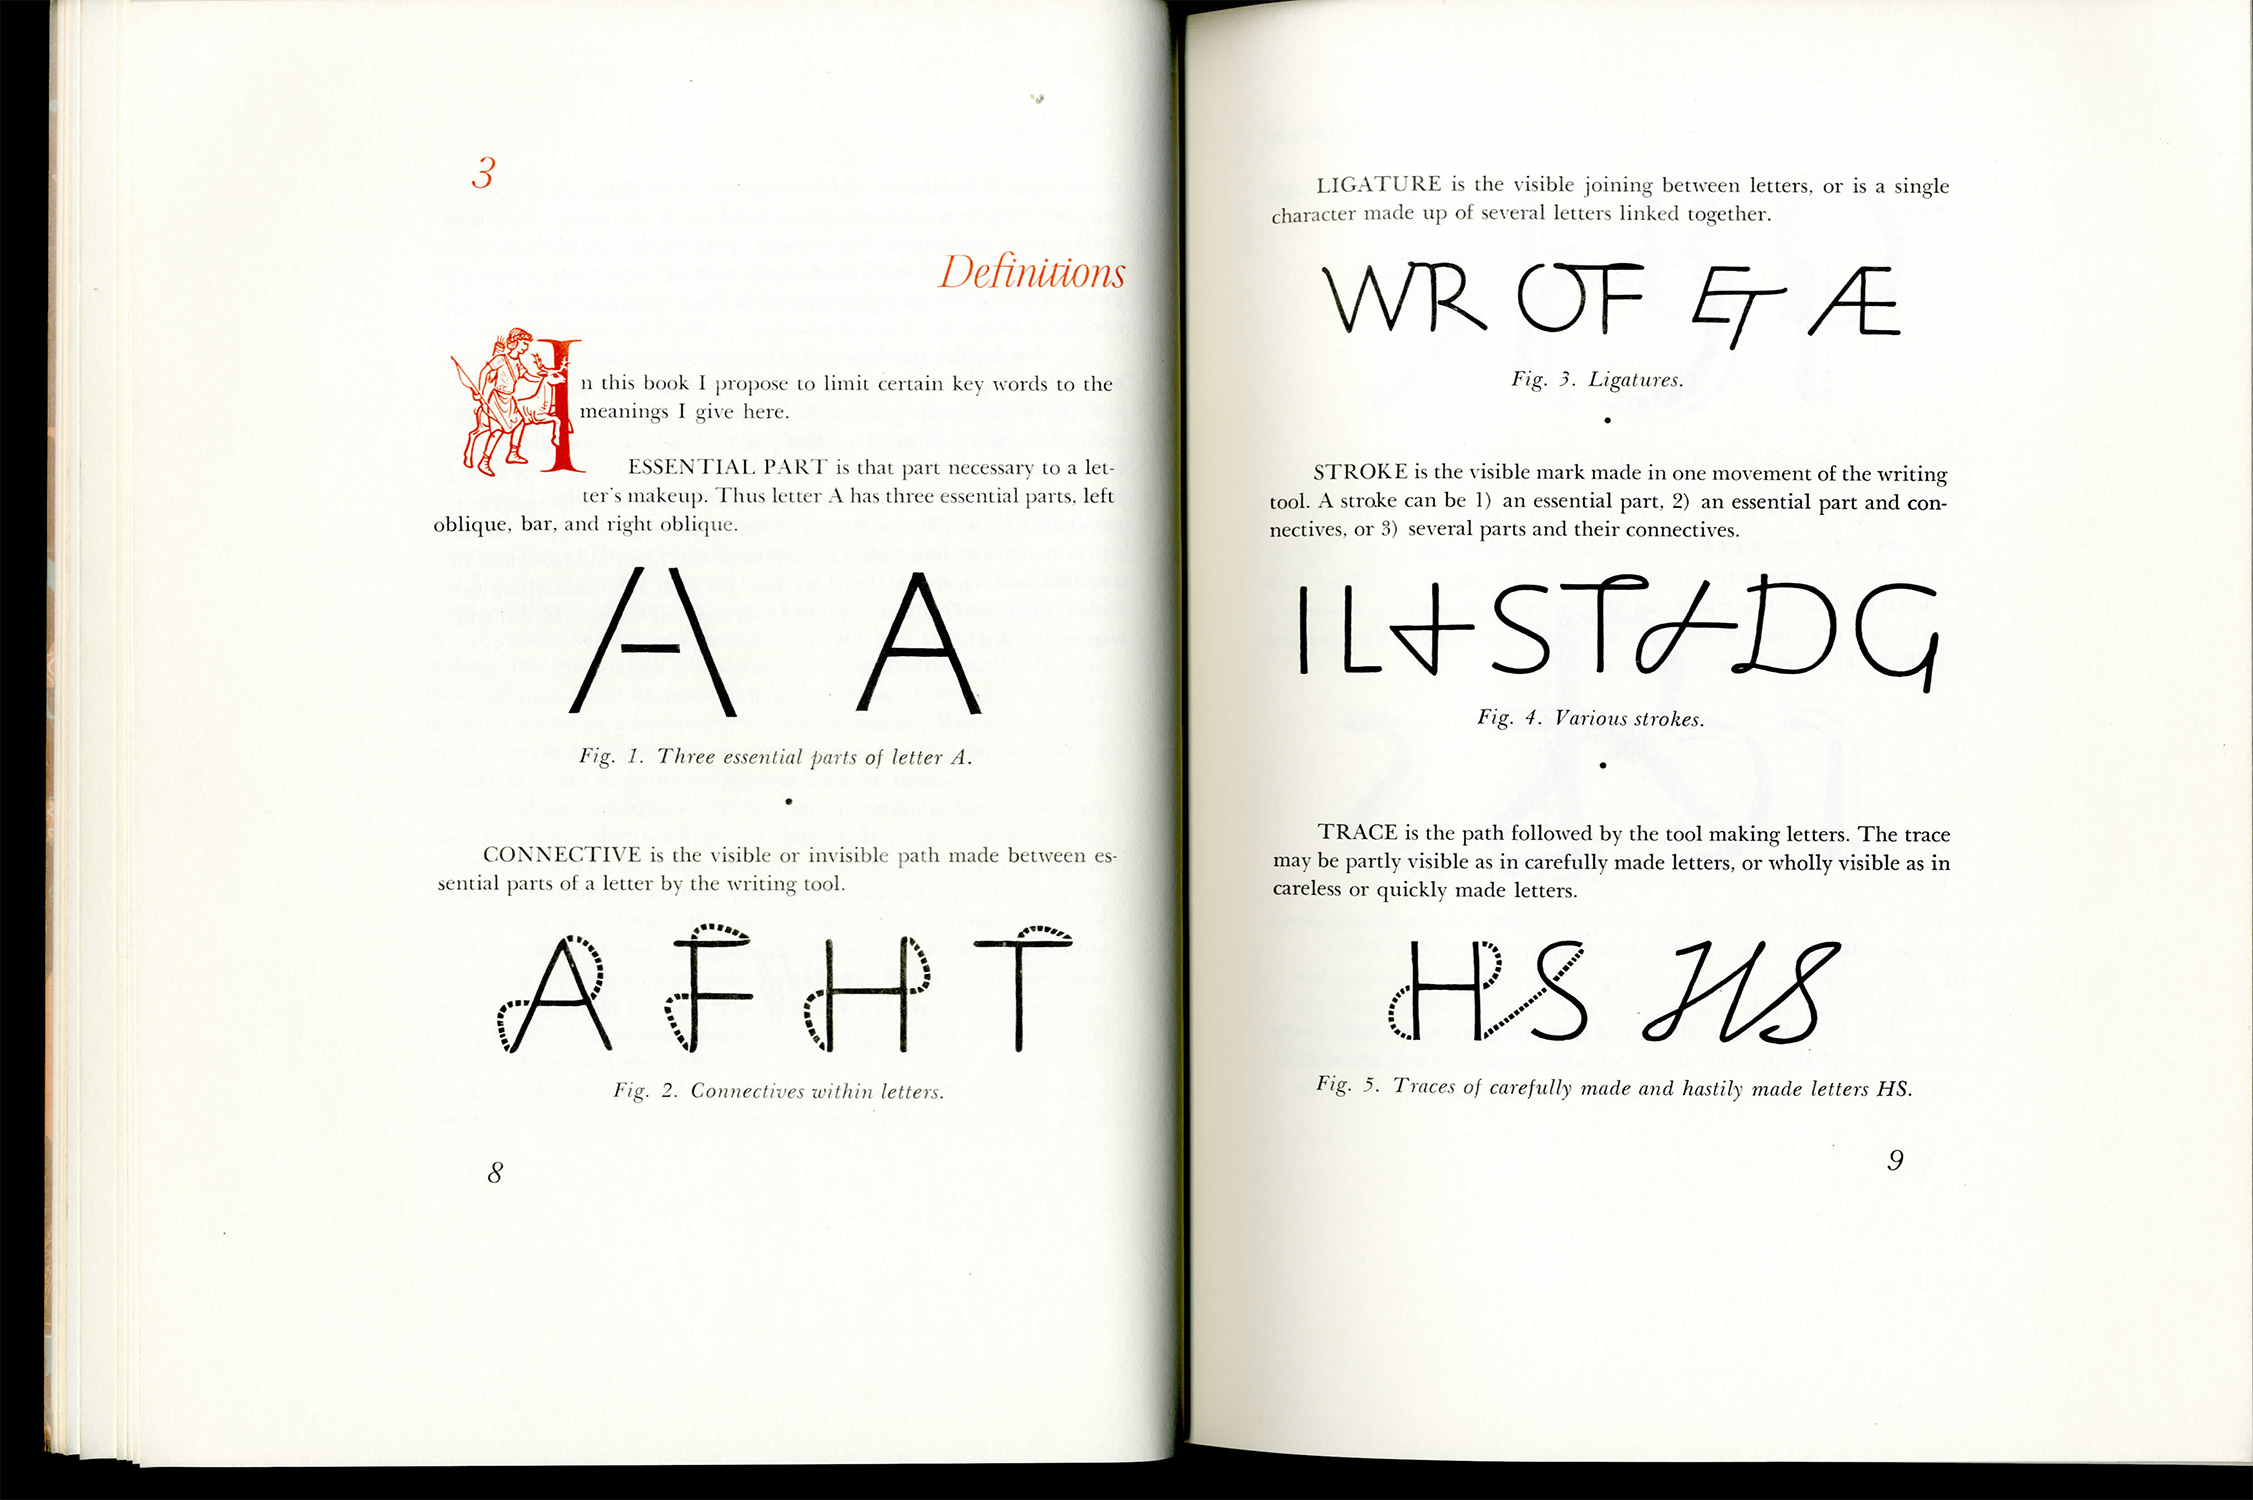 3
Definitions
In this book I propose to limit certain key words to the
meanings I give here.
ESSENTIAL PART is that part necessary to a let-
ter's makeup. Thus letter A has three essential parts, left
oblique, bar, and right oblique.
A A
Fig. 1. Three essential parts of letter A.
•
CONNECTIVE is the visible or invisible path made between es-
sential parts of a letter by the writing tool.
A F H T
Fig. 2. Connectives within letters.
8
LIGATURE is the visible joining between letters, or is a single
character made up of several letters linked together.
WR OF ET Æ
Fig. 3. Ligatures.
•
STROKE is the visible mark made in one movement of the writing
tool. A stroke can be 1) an essential part, 2) an essential part and con-
nectives, or 3) several parts and their connectives.
I L S T D G
Fig. 4. Various strokes.
•
TRACE is the path followed by the tool making letters. The trace
may be partly visible as in carefully made letters, or wholly visible as in
careless or quickly made letters.
HS HS
Fig. 5. Traces of carefully made and hastily made letters HS.
9